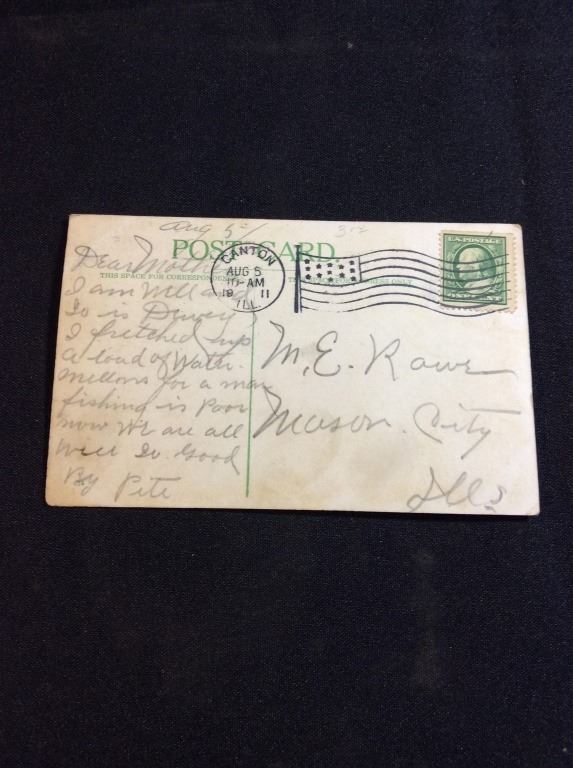 Aug 5
POST CARD
THIS SPACE FOR CORRESPONDENCE
CANTON
AUG 5
10-AM
19 11
ILL.
U.S. POSTAGE
Dear
I am well and
So is Dewey
I fretched up
a load of Water
mellons for a man
fishing is Poor
now We are all
Well So Good
By Pete
M. E. Rowe
Mason City
Ills